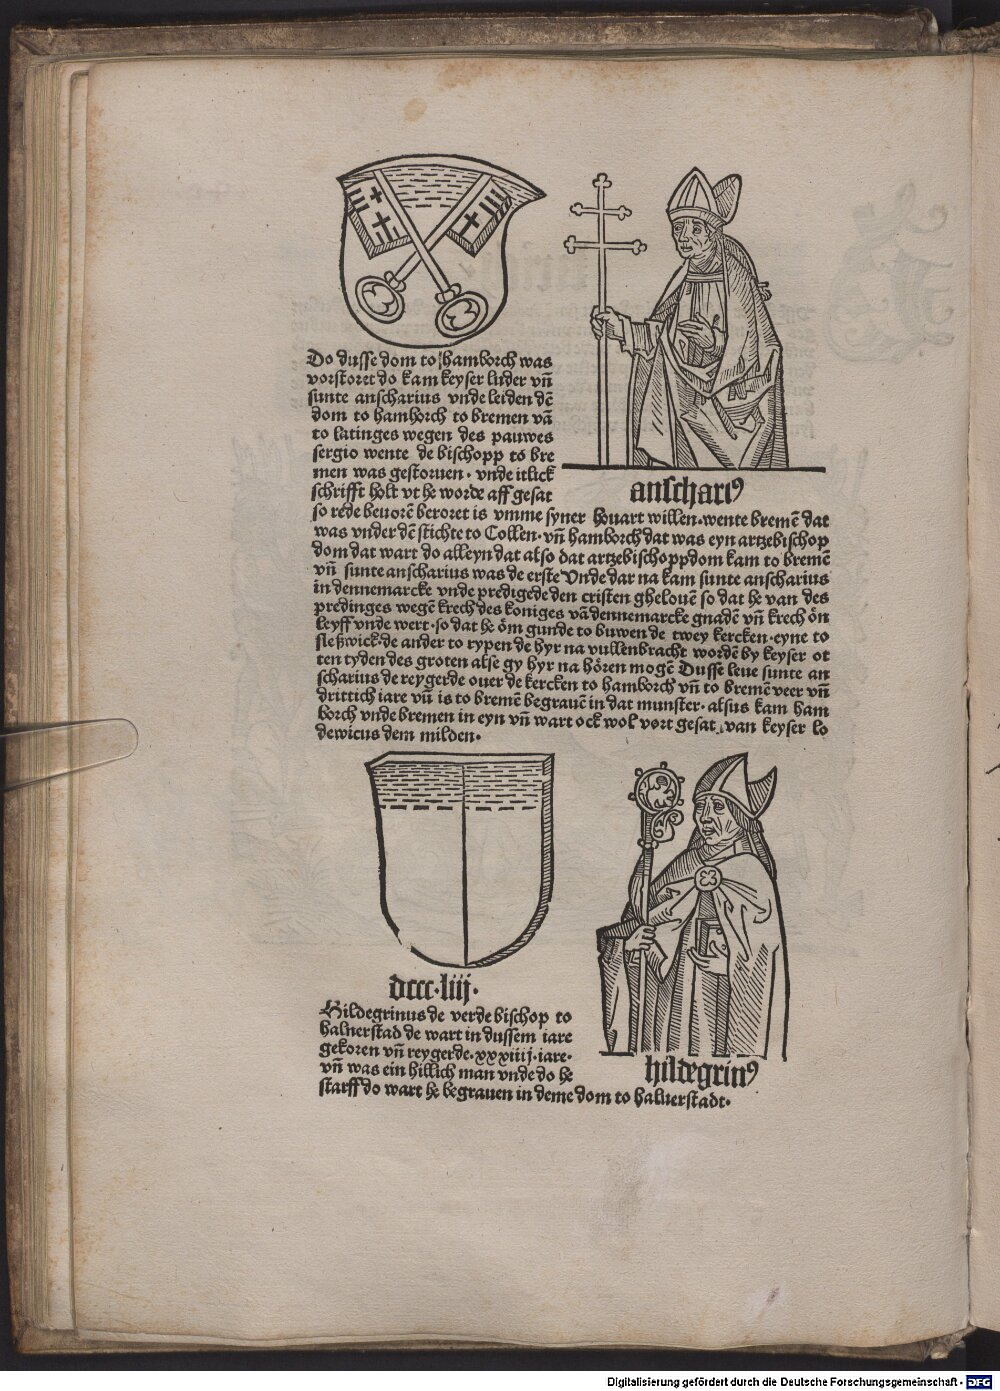 Do dusse dom to hamborch was
vorstoret do kam keyser luder vn̄
sunte anscharius vnde leiden dē
dom to hamhorch to bremen vā
to latinges wegen des pauwes
sergio wente de bischopp to bre
men was gestoruen · vnde itlick
schrifft holt vt he worde aff gesat
anschariꝰ
so rede beuorē beroret is vmme syner houart willen · wente bremē dat
was vnder dē stichte to Collen · vn̄ hamborch dat was eyn artzebischop
dom dat wart do alleyn dat also dat artzebischoppdom kam to bremē
vn̄ sunte anscharius was de erste Vnde dar na kam sunte anscharius
in dennemarcke vnde predigede den cristen ghelouē so dat he van des
predinges wegē krech des koniges vā dennemarcke gnadē vn̄ krech ön
leyff vnde wert · so dat he öm gunde to buwen de twey kercken · eyne to
sleßwick · de ander to rypen de hyr na vullenbracht wordē by keyser ot
ten tyden des groten alse gy hyr na hören mogē Dusse leue sunte an
scharius de reygerde ouer de kercken to hamborch vn̄ to bremē veer vn̄
drittich iare vn̄ is to bremē begrauē in dat munster · alsus kam ham
borch vnde bremen in eyn vn̄ wart ock wol vort gesat van keyser lo
dewicus dem milden ·
dccc · liij ·
Hildegrinus de verde bischop to
haluerstad de wart in dussem iare
gekoren vn̄ reygerde · xxxiiij · iare ·
vn̄ was ein hillich man vnde do he
hildegrinꝰ
starff do wart he begrauen in deme dom to haluerstadt ·
Digitalisierung gefördert durch die Deutsche Forschungsgemeinschaft - DFG